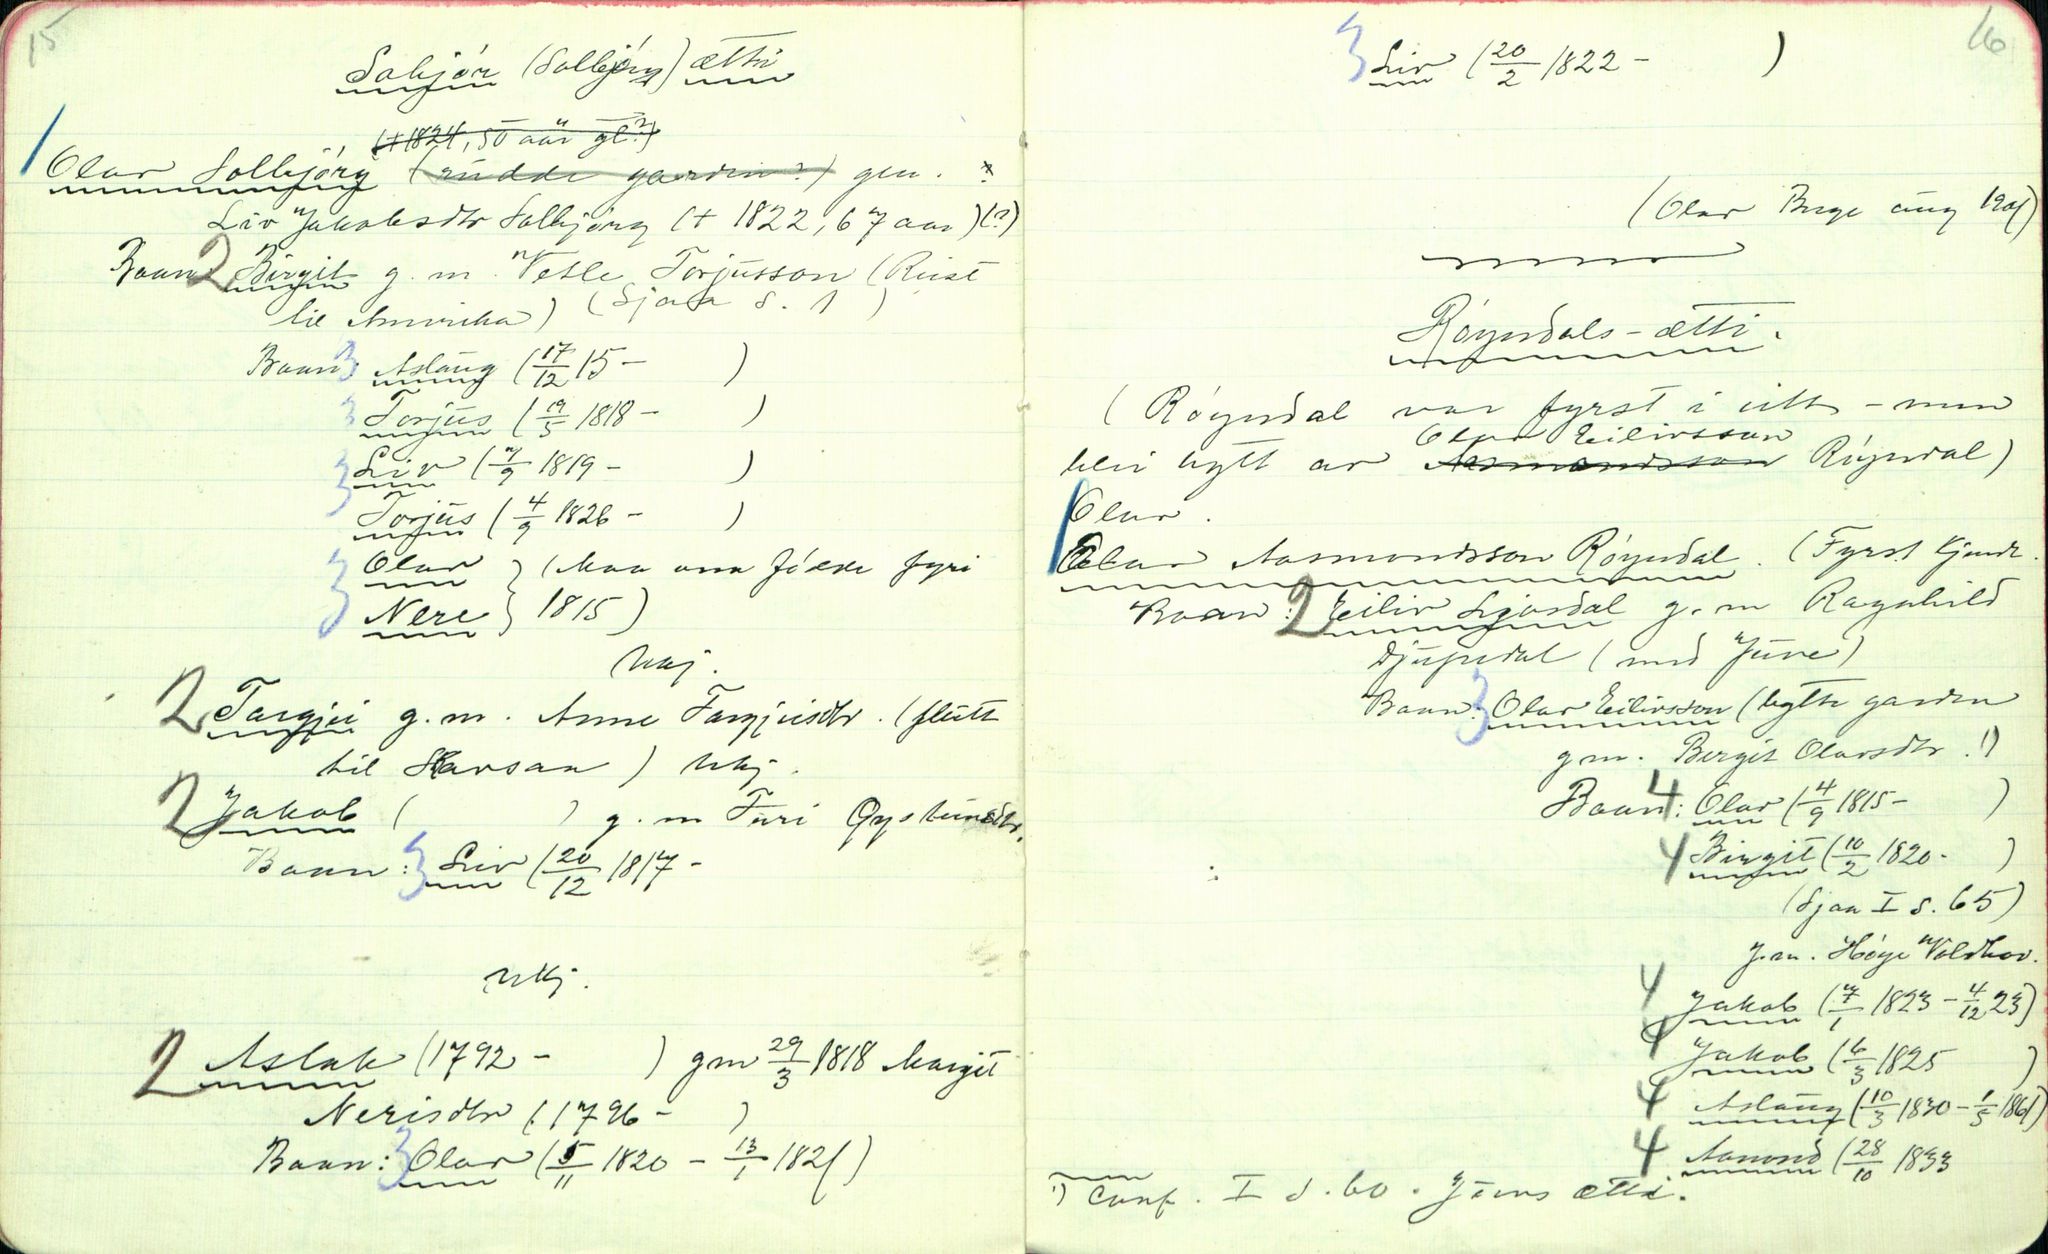 15
Solejór (Solbjörg) ætti
(+1824, 50 aar gl?)
1 Olav Solbjörg (rudde garden?) gm. ?
Liv Jakobsdtr Solbjörg (+ 1822, 67 aar) (?)
Baan: 2 Birgit g. m. Vetle Torjusson (Reist
til Amerika) (Sjaa s. 1)
Baan: 3 Aslaug (17/12 15 - )
3 Torjus (19/5 1818 - )
3 Liv (7/9 1819 - )
3 Torjus (4/9 1826 - )
3 Olav } (Maa vera födde fyri
3 Nere } 1815)
Ukj.
2 Targjei g. m. Anne Targjeisdtr. (flutt
til Skarsaa) Ukj.
2 Jakob ( ) g. m Turi Øysteinsdtr.
Baan: 3 Liv (20/12 1817 -
Ukj.
2 Aslak (1792 - ) gm 29/3 1818 Margit
Nerisdtr (1796 - )
Baan: 3 Olav (5/11 1820 - 13/1 1821)
16
3 Liv (20/2 1822 - )
(Olav Berge aug 1901)
Röyndals-ætti.
(Röyndal var fyrst i eitt - men
blei bytt av Olav Eilivsson Aasmundsson Röyndal)
1 Olav.
Olav Aasmundsson Röyndal. (Fyrst kjende.
Baan: 2 Eiliv Ljosdal g. m Ragnhild
Djupedal (med Juve)
Baan: 3 Olav Eilivsson (bytte garden
gm. Bergit Olavsdtr. 1)
Baan: 4 Olav (4/9 1815 - )
4 Birgit (10/2 1820 - )
(Sjaa I s. 65)
g. m. Höge Voldhov.
4 Jakob (7/1 1823 - 4/12 23)
4 Jakob (6/3 1825 )
4 Aslaug (10/3 1830 - 1/5 1861)
4 Aamund (28/10 1833
1) Conf. I s. 60. Juvs ætti.